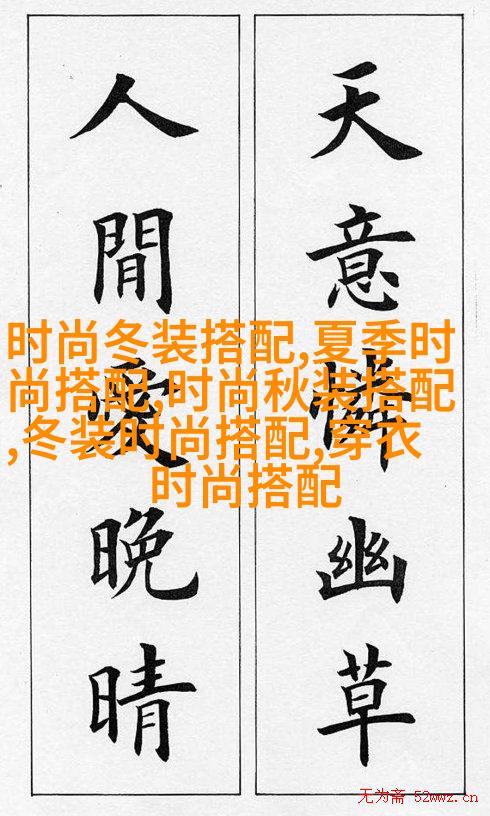 天意憐幽草
人間愛晚晴
时尚冬装搭配,夏季时
尚搭配,时尚秋装搭配
,冬装时尚搭配,穿衣
时尚搭配
无为斋 52wwz.cn